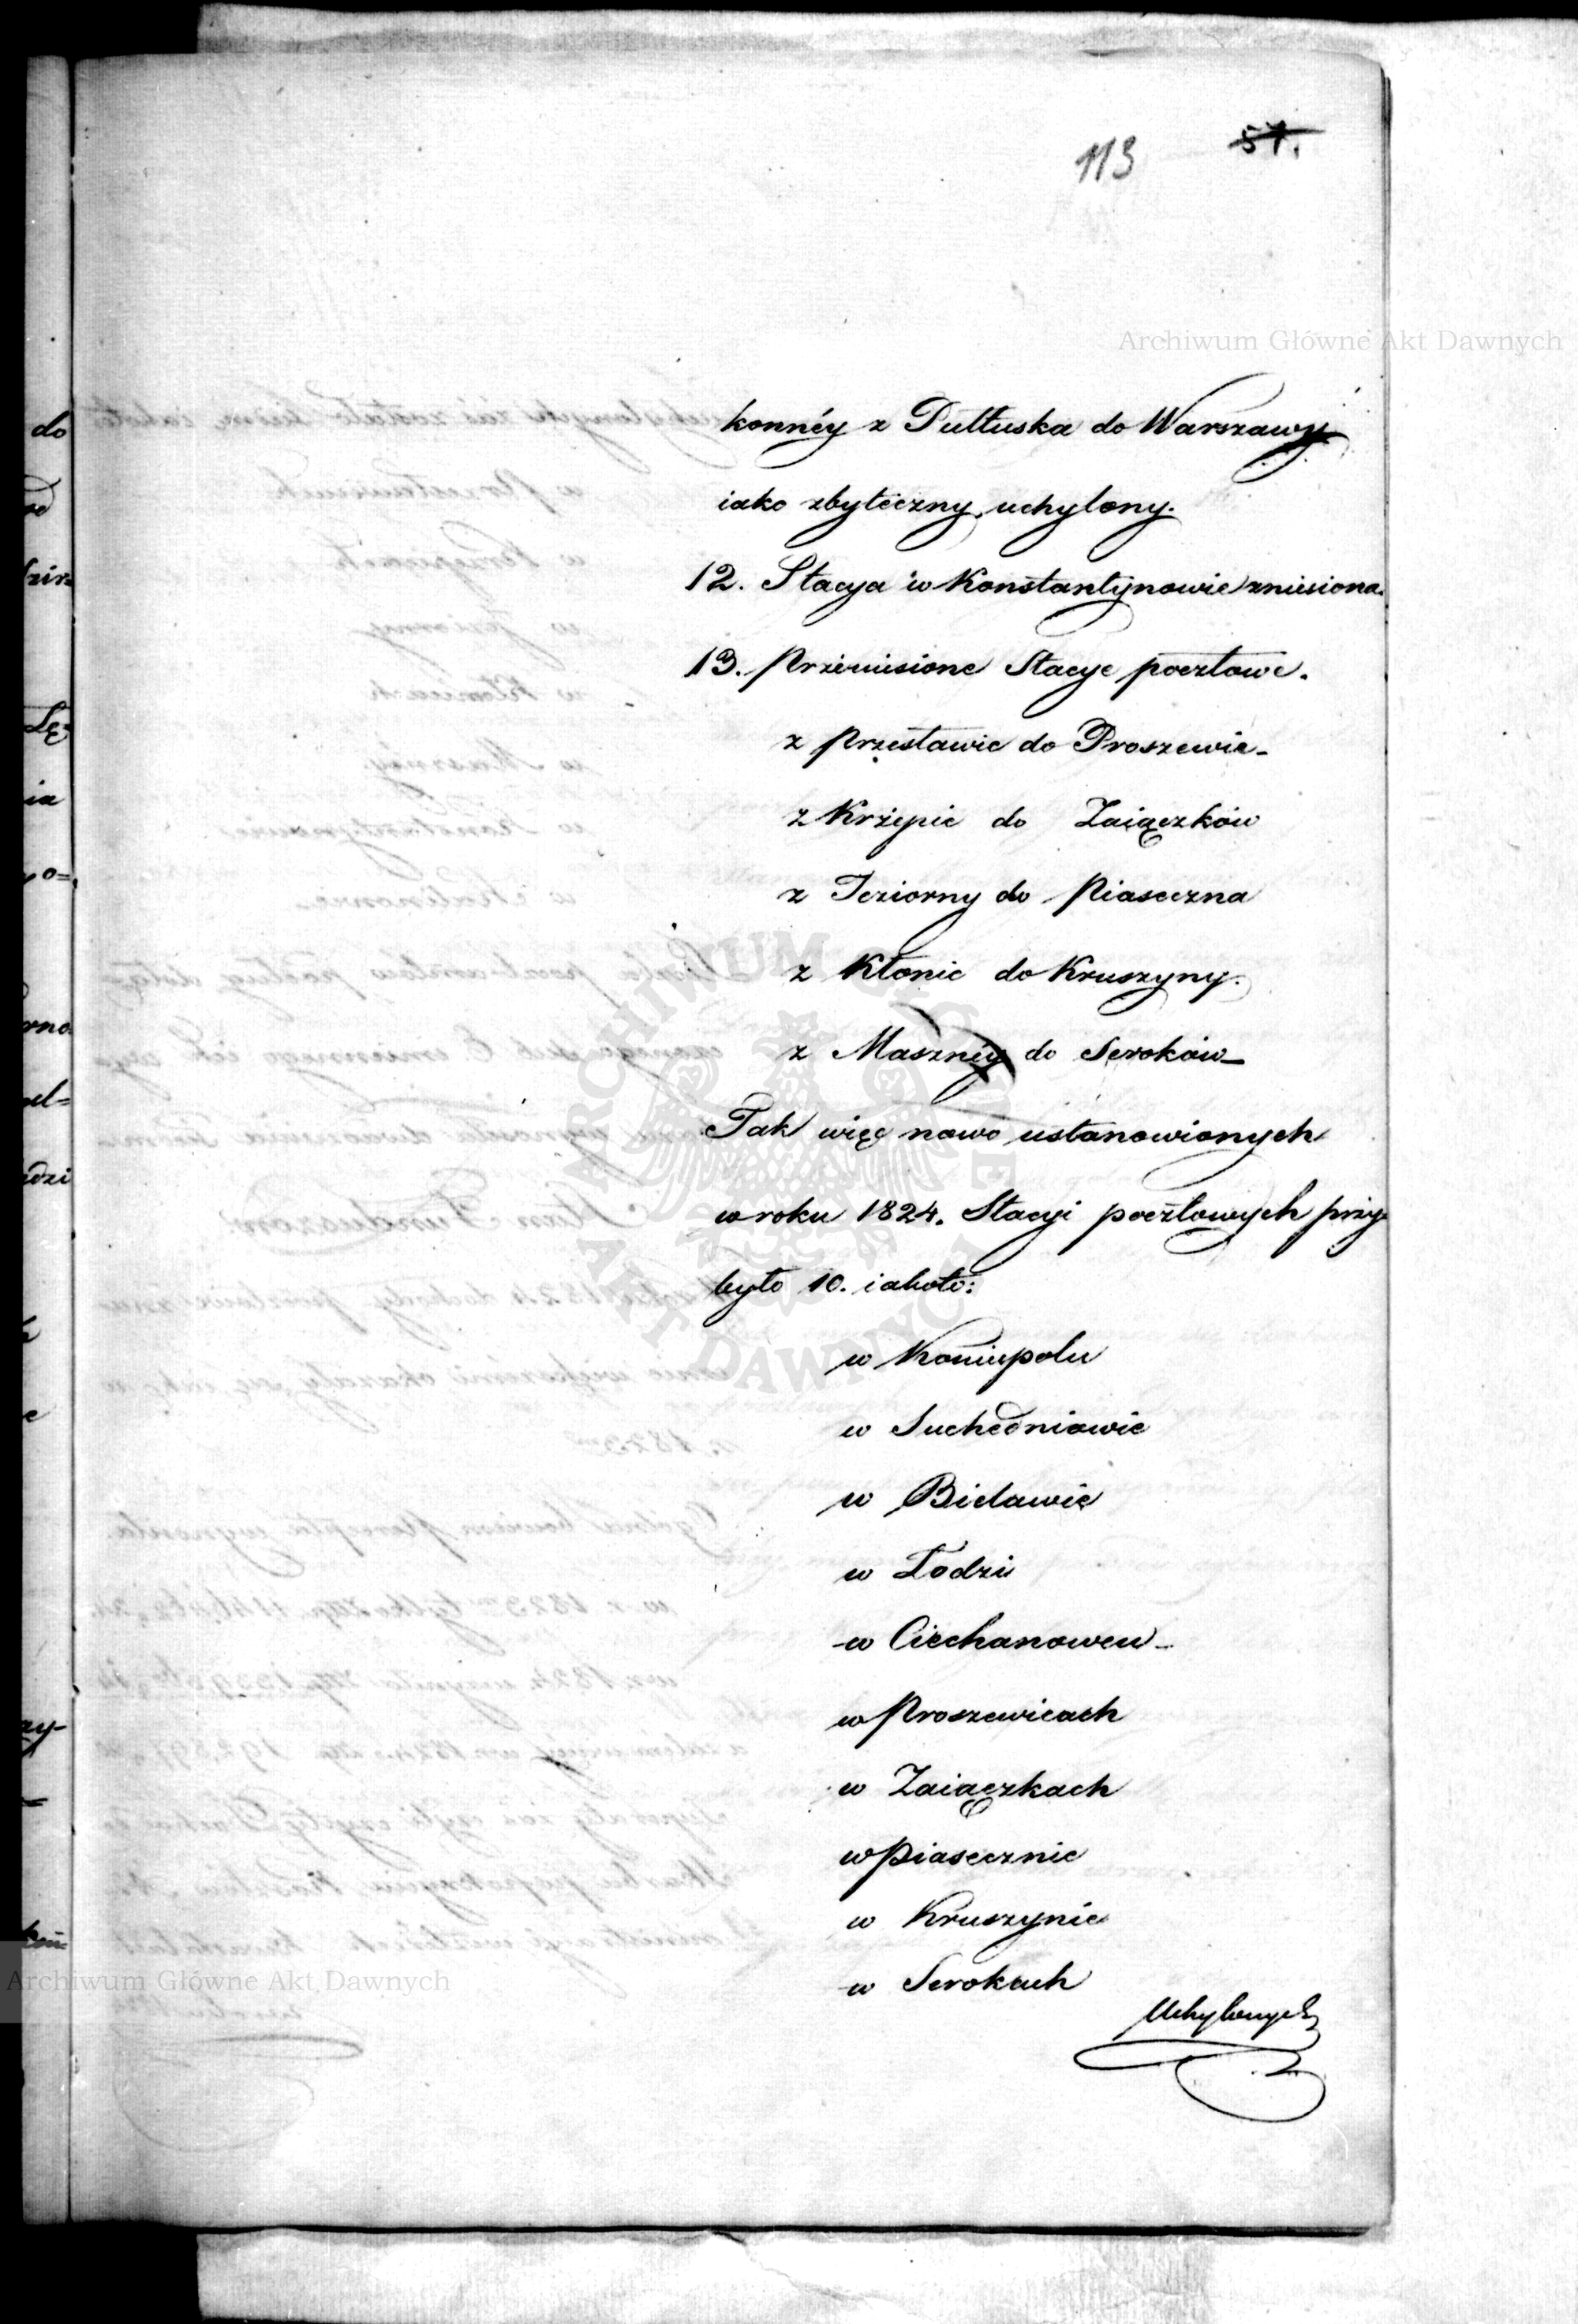 113 57.
Archiwum Główne Akt Dawnych
konnéy z Pułtuska do Warszawy
iako zbyteczny, uchylony.
12. Stacya w Konstantynowie zniesiona.
13. Przeniesione Stacye pocztowe.
z Przestawic do Proszewic
z Krzepic do Zaiączków
z Jeziorny do Piaseczna
z Kłonic do Kruszyny.
z Maszney do Seroków
Tak więc nowo ustanowionych
w roku 1824. Stacyi pocztowych przy
było 10. iakoto:
w Koniecpolu
w Suchedniowie
w Bielawie
w Łodzi
w Ciechanowcu
w Proszewicach
w Zaiączkach
w Piasecznie
w Kruszynie
w Serokach
Uchylonych
Archiwum Główne Akt Dawnych